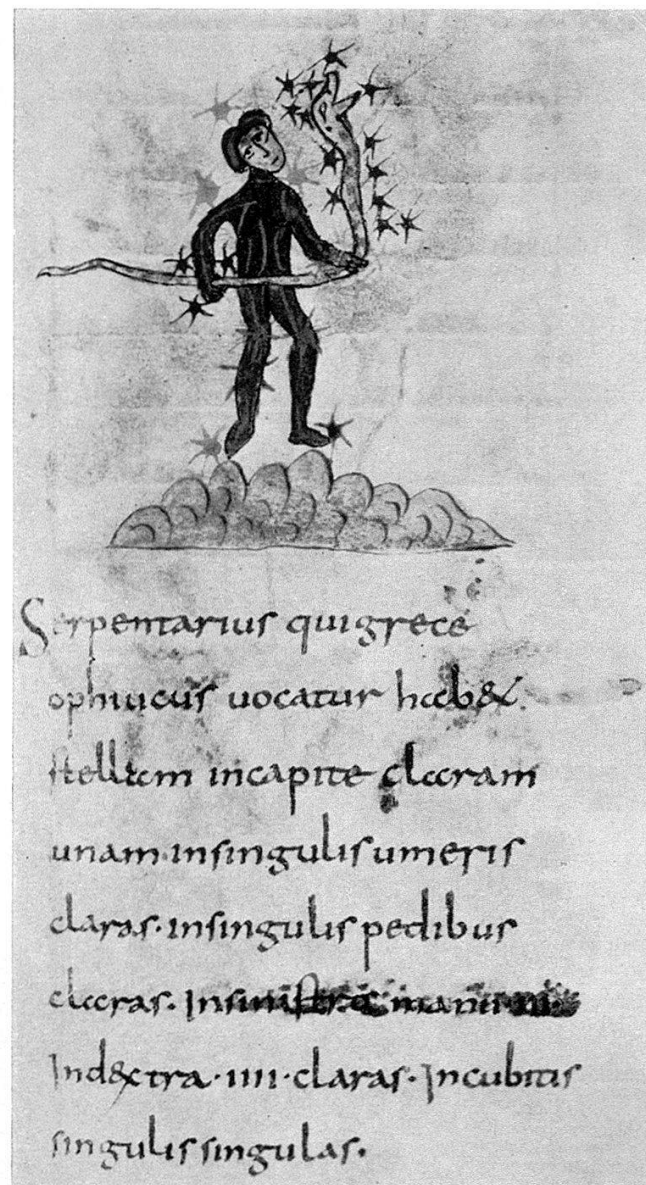 Serpentarius qui grece
ophiucus uocatur habet
stellam in capite claram
unam · in singulis umeris
claras · in singulis pedibus
claras · In sinistra manu · III ·
Indextra · IIII · claras · In cubitis
singulis singulas ·